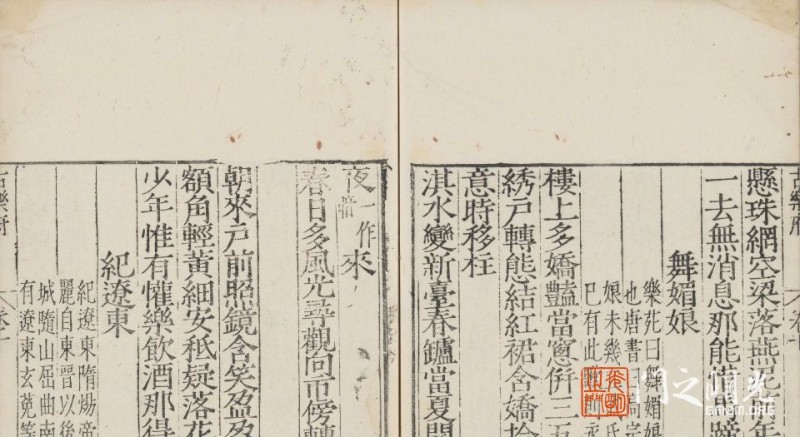 古樂府
懸珠網空梁落燕泥前年
一去無消息那能惜馬蹄
舞媚娘
樂苑曰舞媚娘
也唐書曰高宗
娘未幾氏
已有此永
樓上多嬌豔當窻併三五
繡戶轉態結紅裙含嬌拾
意時移柱
淇水變新臺春鑪當夏開
夜一作來
春日多風光尋觀向市傍轉
朝來戶前照鏡含笑盈盈
額角輕黃細安秪疑落花
少年惟有懽樂飲酒那得
紀遼東
紀遼東隋煬帝
麗自東晉以後
城隨山屈曲南
有遼東玄菟等
古樂府
卷一